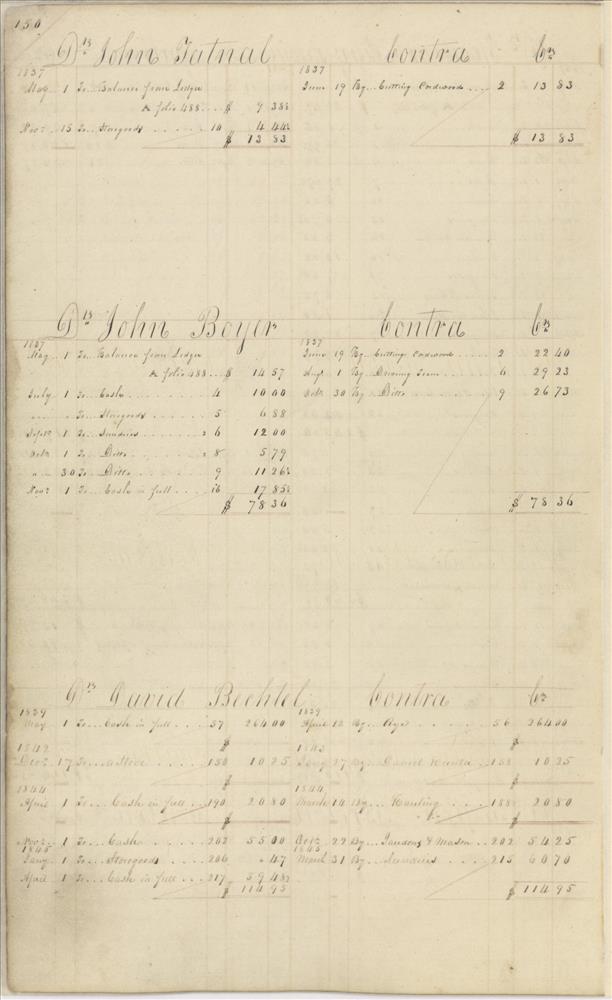 150
Drs John Tatnal Contra Crs
1837 1837
May 1 To Balance from Ledger June 19 By Cutting Cordwood 2 13 83
A folio 488 $ 9 38½
Novr 15 To Storegoods 10 4 44½
$ 13 83 $ 13 83
Drs John Boyer Contra Crs
1837 1837
May 1 To Balance from Ledger June 19 By Cutting Cordwood 2 22 40
A folio 488 $ 14 57 Augt 1 By Driving Team 6 29 23
July 1 To Cash 4 10 00 Octr 30 By Ditto 9 26 73
" " To Storegoods 5 6 88
Septr 1 To Sundries 6 12 00
Octr 1 To Ditto 8 5 79
" 30 To Ditto 9 11 26½
Novr 1 To Cash in full 10 17 85½
$ 78 36 $ 78 36
Drs David Bechtel Contra Crs
1839 1839
May 1 To Cash in full 57 264 00 April 12 By Rye 56 264 00
$ $
1842 1843
Decr 17 To 150 10 25 Jany 27 By Daniel 158 10 25
$ $
1844 1844
April 1 To Cash in full 190 20 80 March 14 By Hauling 188 20 80
$ $
Novr 1 To Cash 202 55 00 Octr 22 By & Mason 202 54 25
1845 1845
Jany 1 To Storegoods 206 " 47 March 31 By Sundries 215 60 70
April 1 To Cash in full 217 59 48½
$ 114 95 $ 114 95